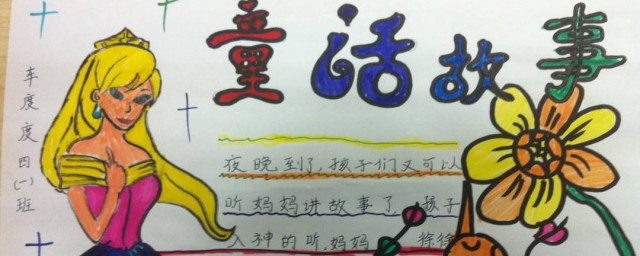 童话故事
夜晚到了,孩子们又可以
听妈妈讲故事了,孩子
入神的听,妈妈 徐徐
车度度四(一)班